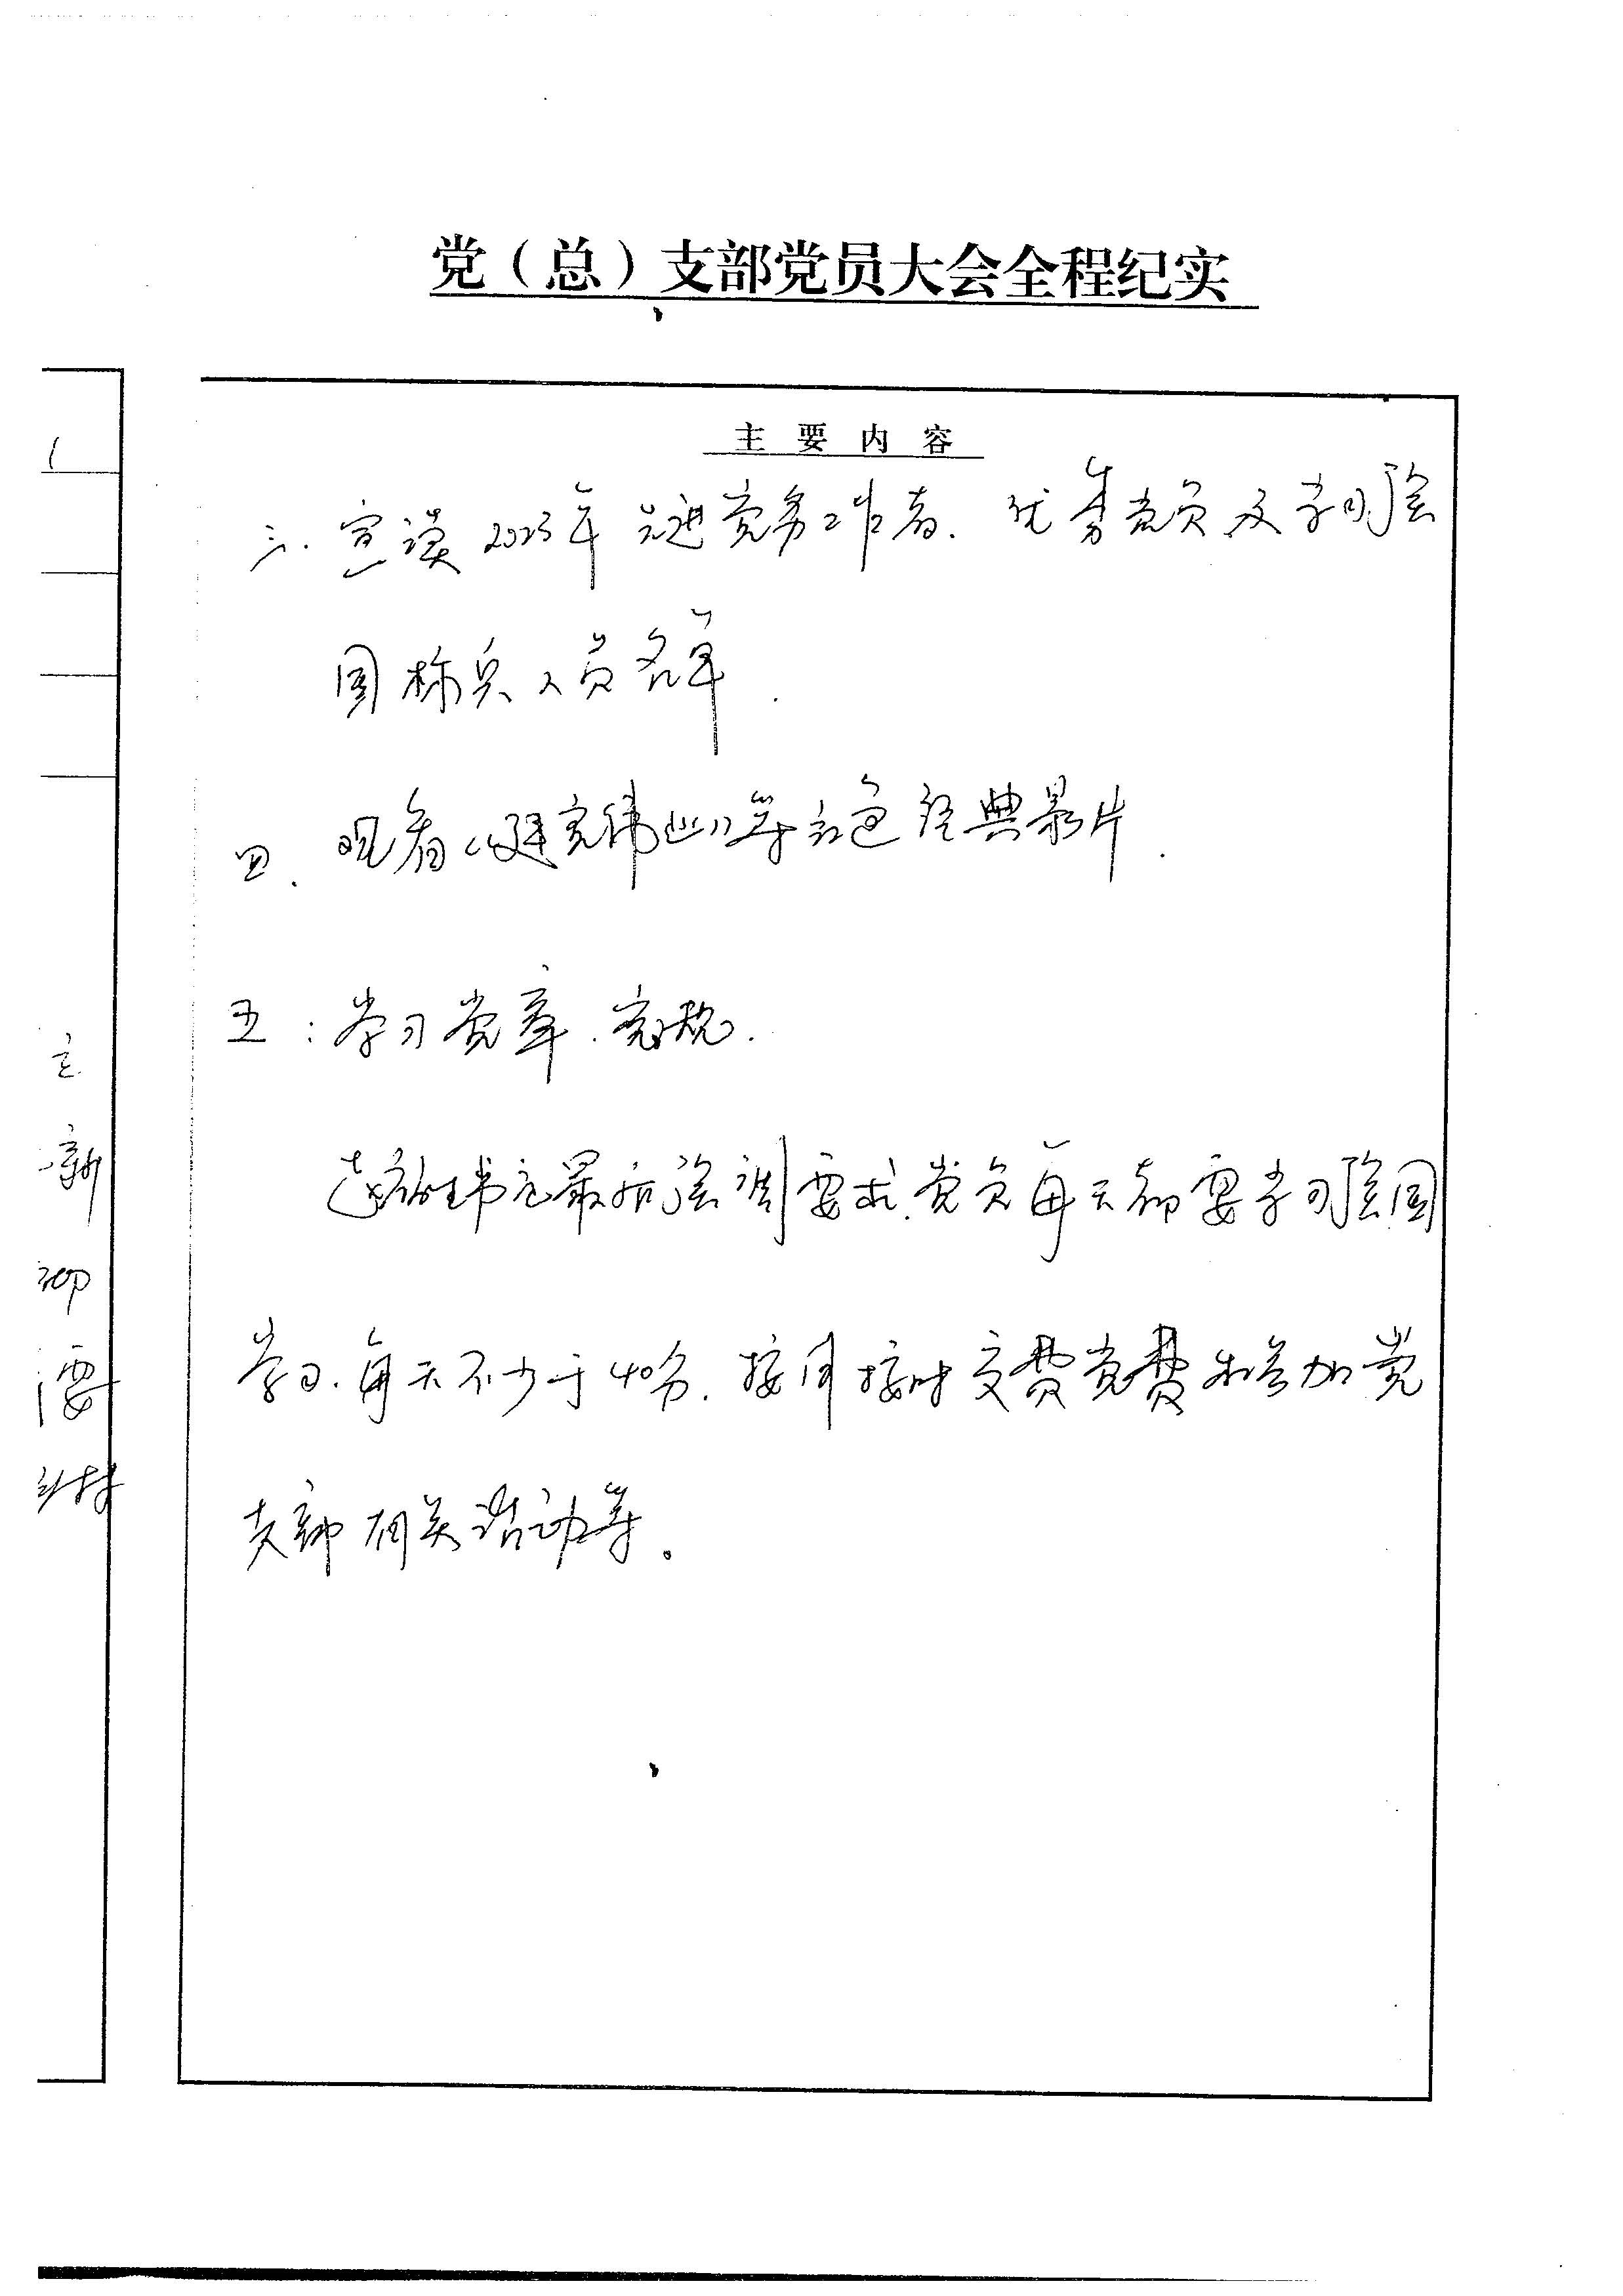 党（总）支部党员大会全程纪实
主要内容
三、宣读2023年先进党务工作者、优秀党员及学习强
国标兵人员名单.
四、观看《建党伟业》等红色经典影片.
五：学习党章、党规.
书记最后强调要求党员每天都要学习强国
学习、每天不少于40分、按月按时交费党费和参加党
支部相关活动等。
新
要